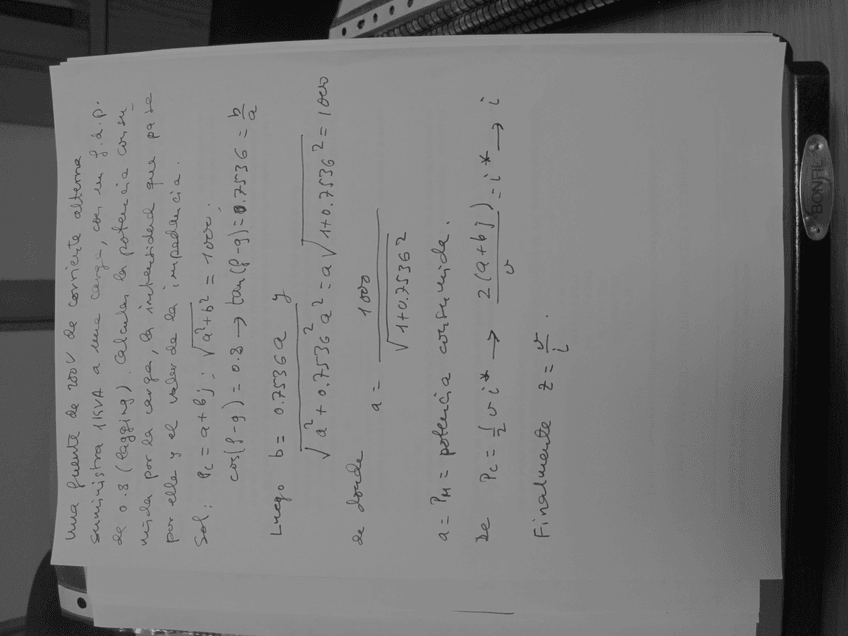 Una fuente de 200V de corriente alterna
suministra 1KVA a una carga, con un f.d.p.
de 0.8 (lagging). Calcular la potencia consu-
mida por la carga, la intensidad que pasa
por ella y el valor de la impedancia.
Sol: Pc = a+bj ; √(a²+b²) = 1000;
cos(φ-φ) = 0.8 → tan(φ-φ) = 0.7536 = b/a
Luego b = 0.7536a y
√(a² + 0.7536² a²) = a √(1+0.7536²) = 1000
de donde a = 1000 / √(1+0.7536²)
a = PM = potencia consumida.
De Pc = ½ v i* → 2(a+bj)/v = i* → i
Finalmente z = v/i.
BONFIL